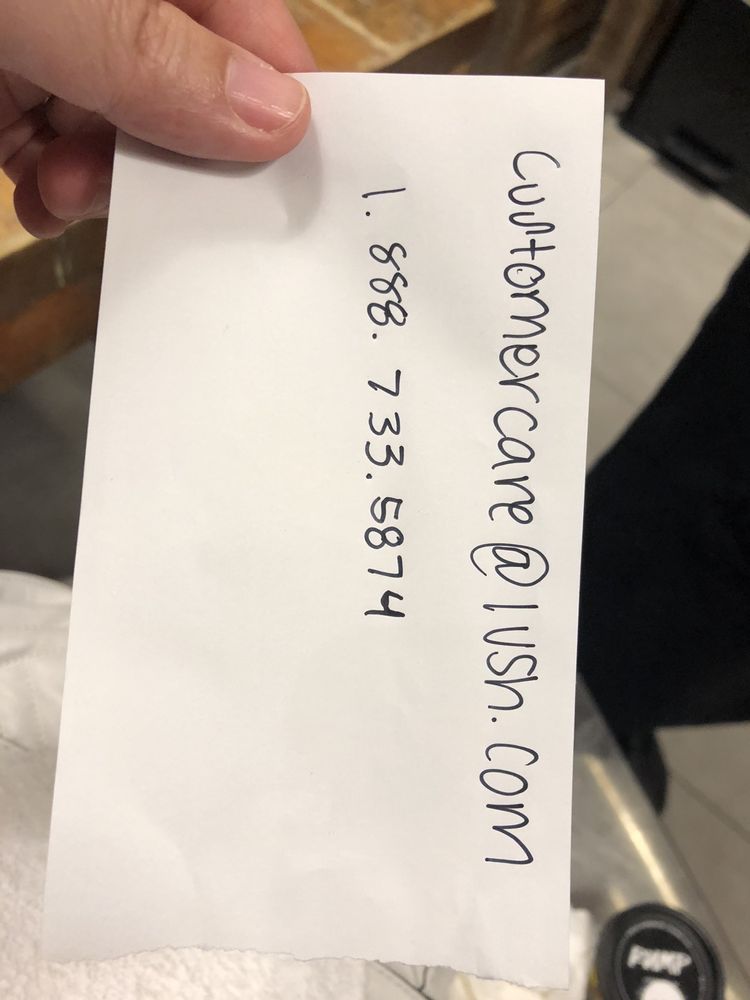 customercare@lush.com
1. 888. 733. 5874
PUMP